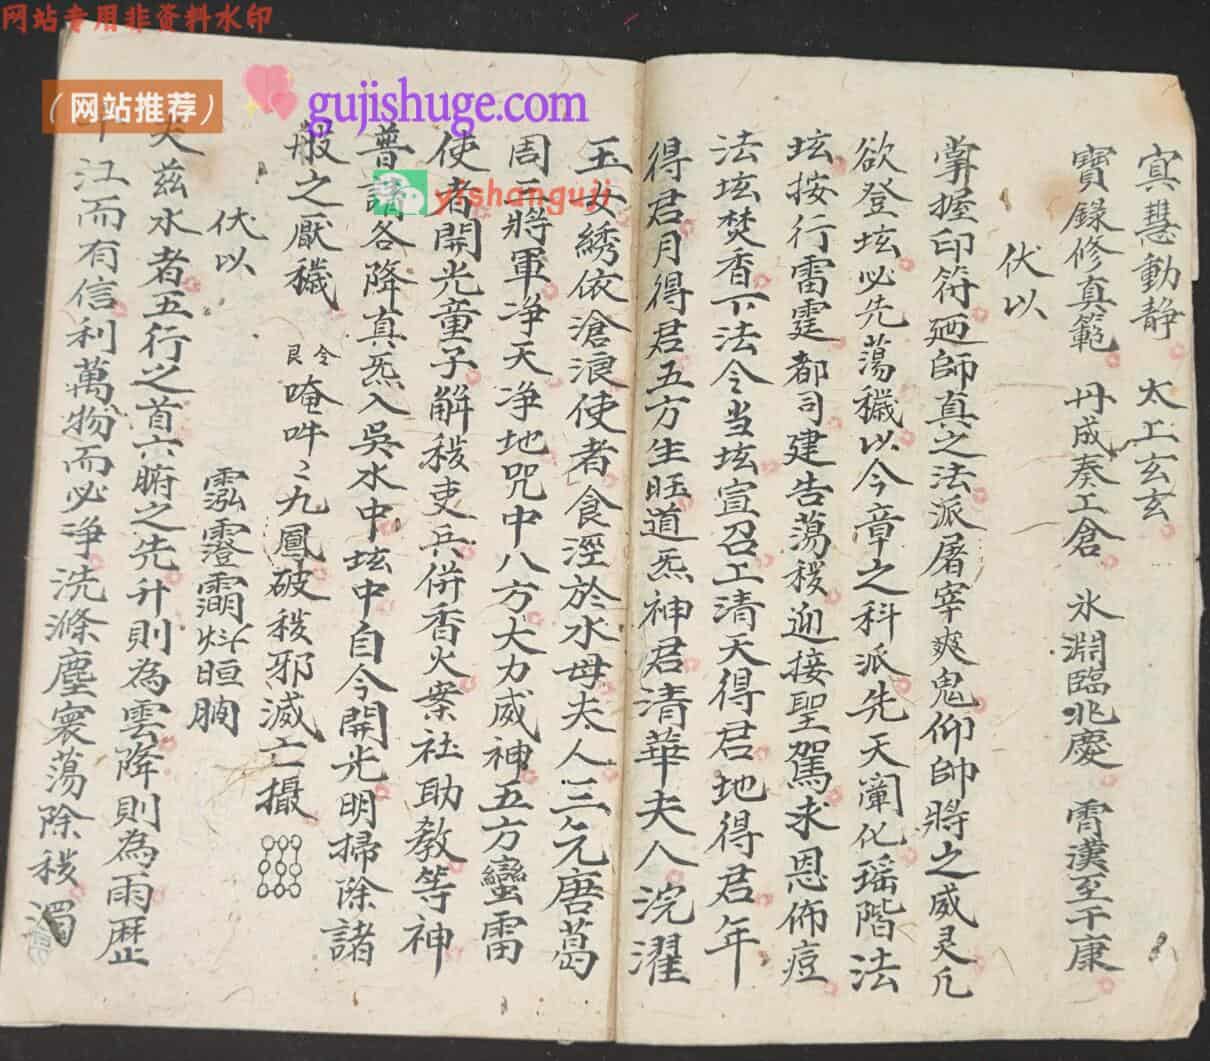 网站专用非资料水印
(网站推荐)
gujishuge.com
yishanguji
寘慧動靜 太工玄玄
寶録修真範 丹成奏工倉 氷淵臨兆慶 霄漢至干康
伏以
掌握印符廼師真之法派屠宰爽鬼仰帥將之威灵凢
欲登玹必先蕩穢以今章之科派先天闡化瑶階法
玹按行雷霆都司建告蕩秽迎接聖駕求恩佈痘
法玹焚香下法令当玹宣召工清天得君地得君年
得君月得君五方生旺道炁神君清華夫人浣濯
玉女綉依滄浪使者食淫於水母夫人三元唐葛
周三將軍净天净地咒中八方大力威神五方蠻雷
使者開光童子解秽吏兵併香火案社助教等神
普請各降真炁入吳水中玹中自今開光明掃除諸
般之厭穢 令艮唵吽〻九鳳破秽邪滅亡攝
伏以
夫兹水者五行之首六腑之先升則為雲降則為雨歴
江而有信利萬物而必净洗滌塵寰蕩除秽濁